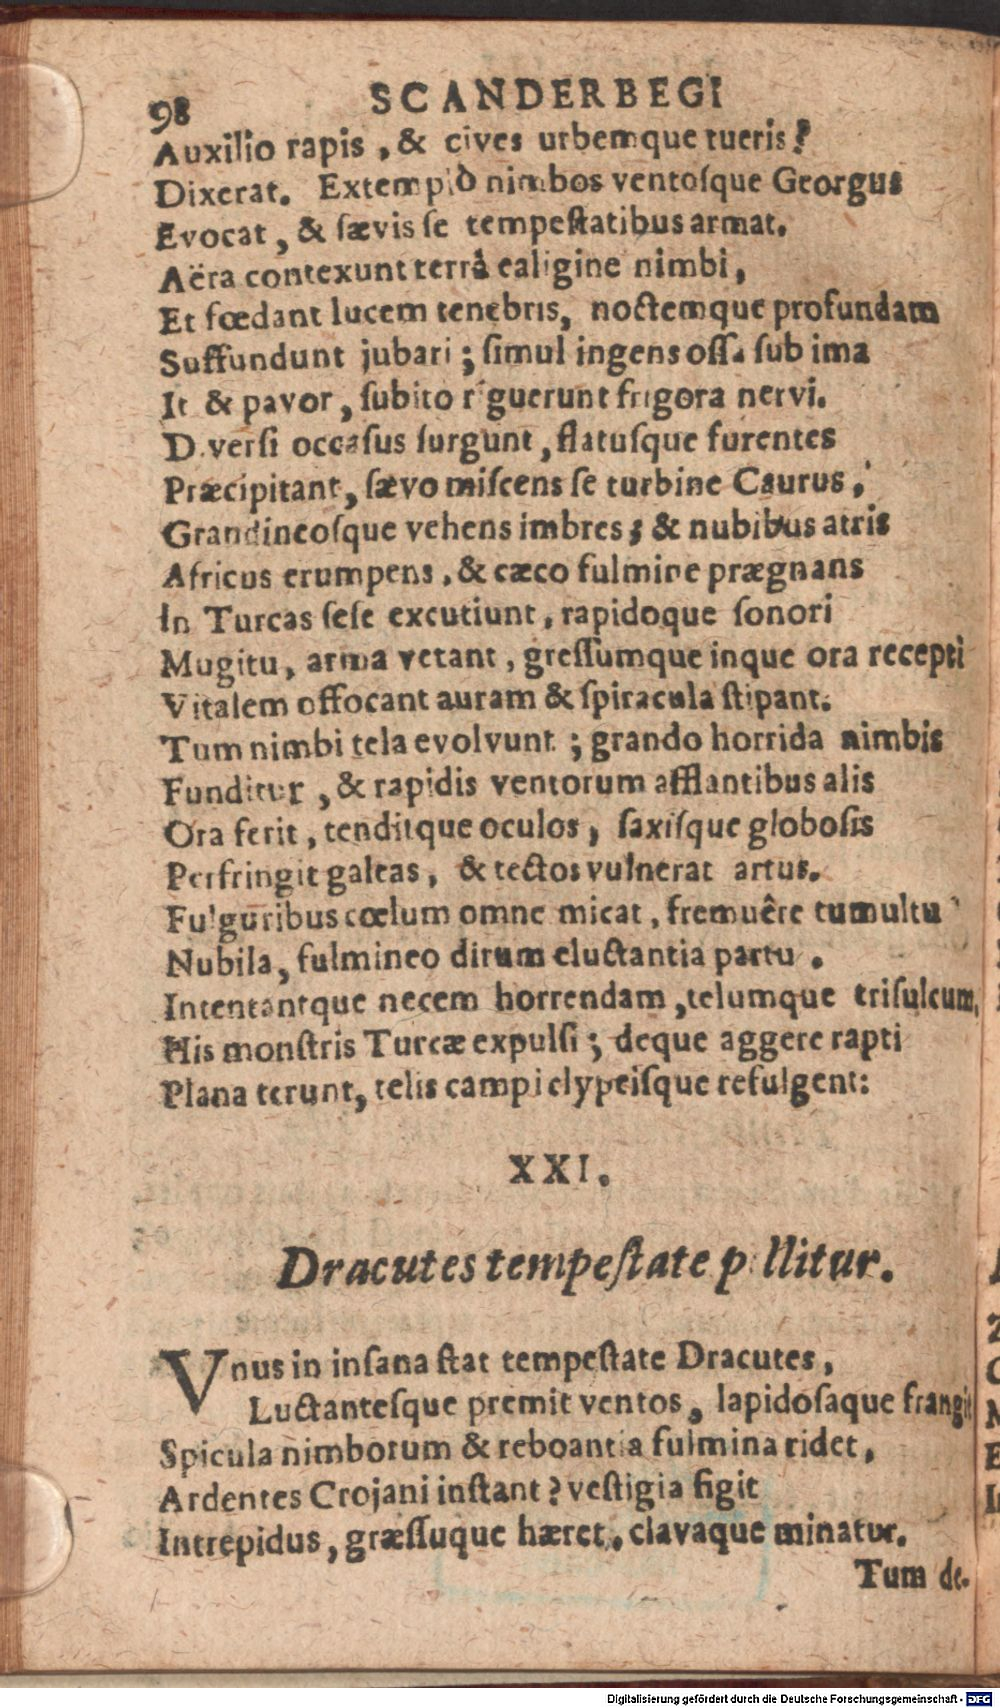 98 SCANDERBEGI
Auxilio rapis, & cives urbemque tueris?
Dixerat. Extemplò nimbos ventoſque Georgus
Evocat, & ſævis ſe tempeſtatibus armat.
Aëra contexunt terrâ caligine nimbi,
Et fœdant lucem tenebris, noctemque profundam
Suffundunt jubari; ſimul ingens oſſa ſub ima
It & pavor, ſubito riguerunt frigora nervi.
Diverſi occaſus ſurgunt, flatuſque furentes
Præcipitant, ſævo miſcens ſe turbine Caurus,
Grandineoſque vehens imbres; & nubibus atris
Africus erumpens, & cæco fulmine prægnans
In Turcas ſeſe excutiunt, rapidoque ſonori
Mugitu, arma vetant, greſſumque inque ora recepti
Vitalem offocant auram & ſpiracula ſtipant.
Tum nimbi tela evolvunt; grando horrida nimbis
Funditur, & rapidis ventorum afflantibus alis
Ora ferit, tenditque oculos, ſaxiſque globoſis
Perfringit galeas, & tectos vulnerat artus.
Fulguribus cœlum omne micat, fremuêre tumultu
Nubila, fulmineo dirum eluctantia partu.
Intentantque necem horrendam, telumque triſulcum,
His monſtris Turcæ expulſi; deque aggere rapti
Plana terunt, telis campi clypeiſque refulgent:
XXI.
Dracutes tempeſtate pellitur.
Vnus in inſana ſtat tempeſtate Dracutes,
Luctanteſque premit ventos, lapidoſaque frangit
Spicula nimborum & reboantia fulmina ridet,
Ardentes Crojani inſtant? veſtigia figit
Intrepidus, græſſuque hæret, clavaque minatur.
Tum de-
Digitalisierung gefördert durch die Deutsche Forschungsgemeinschaft - DFG